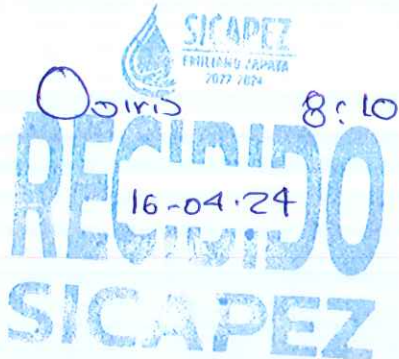 SICAPEZ
EMILIANO ZAPATA
2022-2024
Osiris 8:10
RECIBIDO
16-04-24
SICAPEZ